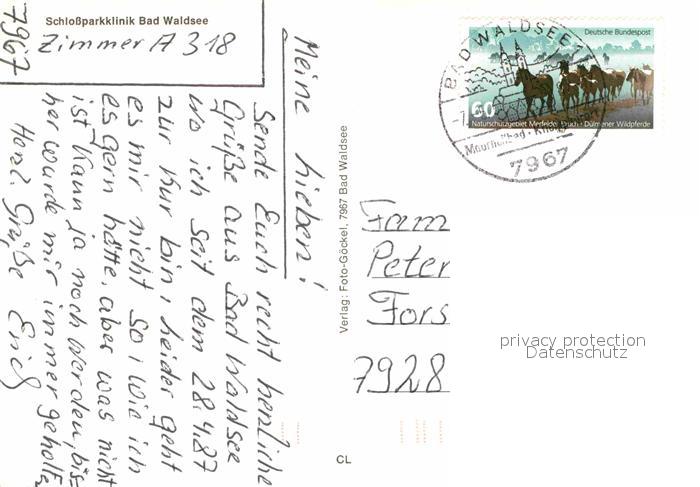 Schloßparkklinik Bad Waldsee
Zimmer A 318
7967
Meine Lieben!
Sende Euch recht herzliche
Grüße aus Bad Waldsee
wo ich seit dem 28.4.87
zur Kur bin, leider geht
es mir nicht so, wie ich
es gern hätte, aber was nicht
ist kann ja noch werden, bis-
her wurde mir immer geholfen
Herzl. Grüße Erich
Verlag: Foto-Göckel, 7967 Bad Waldsee
CL
Deutsche Bundespost
60
Naturschutzgebiet Merfelder Bruch · Dülmener Wildpferde
BAD WALDSEE 1
Moorheilbad
7967
Fam
Peter
Fors
7928
privacy protection
Datenschutz